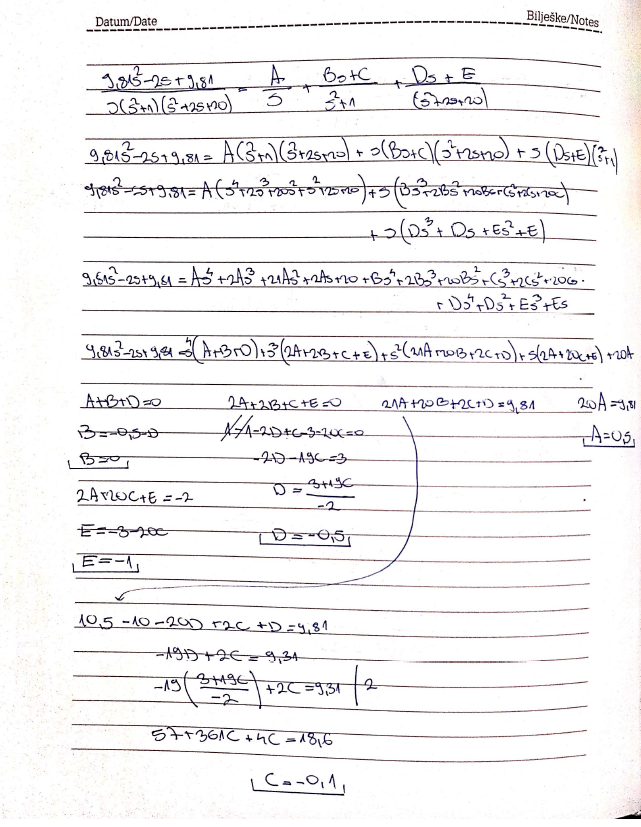 Datum/Date Bilješke/Notes
(9,81s²-2s+9,81)/(s(s²+1)(s²+2s+20)) = A/s + (Bs+C)/(s²+1) + (Ds+E)/(s²+2s+20)
9,81s²-2s+9,81 = A(s²+1)(s²+2s+20) + s(Bs+C)(s²+2s+20) + s(Ds+E)(s²+1)
9,81s²-2s+9,81 = A(s⁴+2s³+20s²+s²+2s+20)+s(Bs³+2Bs²+20Bs+Cs²+2Cs+20C)
+ s(Ds³+Ds+Es²+E)
9,81s²-2s+9,81 = As⁴+2As³+21As²+2As+20+Bs⁴+2Bs³+20Bs²+Cs³+2Cs²+20Cs
+ Ds⁴+Ds²+Es³+Es
9,81s²-2s+9,81 = s⁴(A+B+D)+s³(2A+2B+C+E)+s²(21A+20B+2C+D)+s(2A+20C+E)+20A
A+B+D=0 2A+2B+C+E=0 21A+20B+2C+D=9,81 20A=9,81
B=-0,5-D 1-1-2D+C-3-20C=0 A=0,5
B=0 -2D-19C=3
2A+20C+E=-2 D=(3+19C)/-2
E=-3-20C D=-0,5
E=-1
10,5-10-20D+2C+D=9,81
-19D+2C=9,31
-19((3+19C)/-2)+2C=9,31 |2
57+361C+4C=18,6
C=-0,1